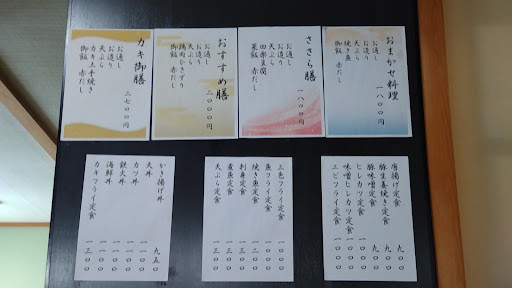 おまかせ料理
お通し
お造り
天ぷら
焼き魚
御飯 赤だし
一八〇〇円
ささら膳
お通し
お造り
田楽豆腐
天ぷら
菜飯 赤だし
一八〇〇円
おすすめ膳
お通し
お造り
天ぷら
鶏肉ひきずり
御飯 赤だし
二〇〇〇円
カキ御膳
お通し
お造り
天ぷら
カキ土手焼き
御飯 赤だし
二七〇〇円
唐揚げ定食 九〇〇
豚生姜焼き定食 九〇〇
豚味噌定食 九〇〇
ヒレカツ定食 一一〇〇
味噌ヒレカツ定食 一一〇〇
エビフライ定食 一一〇〇
三色フライ定食 一〇〇〇
魚フライ定食 一一〇〇
焼き魚定食 一二〇〇
刺身定食 一三〇〇
煮魚定食 一三〇〇
天ぷら定食 一三〇〇
かき揚げ丼 九五〇
天丼
カツ丼
鉄火丼
海鮮丼
カキフライ定食 一三〇〇